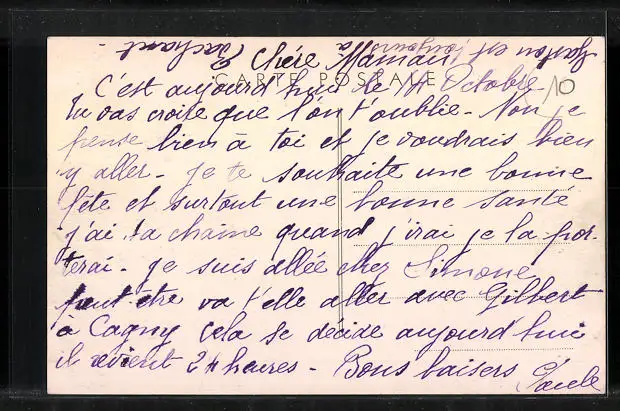 Gaston est toujours à
Cachant.
Chére Maman
CARTE POSTALE
C'est aujourd'hui le 14 Octobre
10
tu vas croire que l'on t'oublie - Non je
pense bien à toi et je voudrais bien
y aller - je te souhaite une bonne
fête et surtout une bonne santé
j'ai ta chaine quand j'irai je la por-
terai - je suis allée chez Simone
peut-etre va t'elle aller avec Gilbert
a Cagny cela se décide aujourd'hui
il revient 24 heures - Bons baisers
Paule